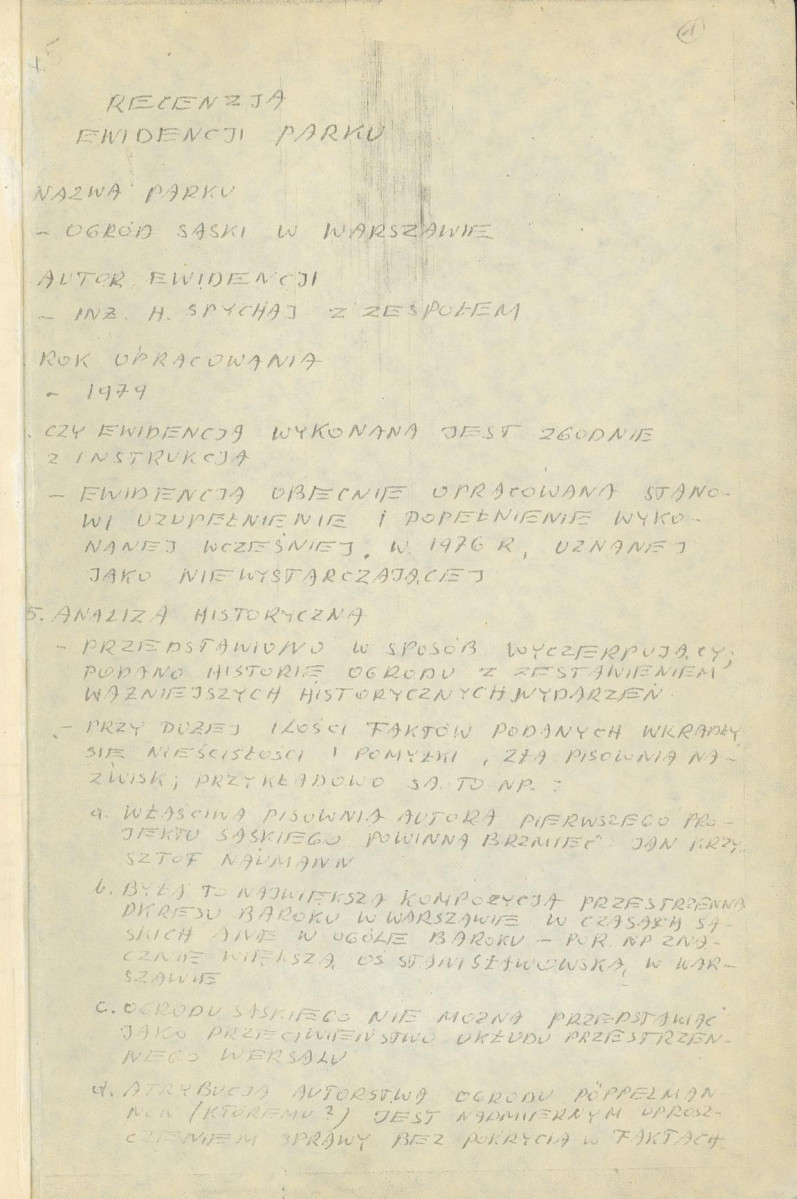 +5
1
RECENZJA
EWIDENCJI PARKU
NAZWA PARKU
- OGRÓD SASKI W WARSZAWIE
AUTOR EWIDENCJI
- INŻ. H. SPYCHAJ Z ZESPOŁEM
ROK OPRACOWANIA
- 1979
CZY EWIDENCJA WYKONANA JEST ZGODNIE
Z INSTRUKCJĄ
- EWIDENCJA OBECNIE OPRACOWANA STANO-
WI UZUPEŁNIENIE I DOPEŁNIENIE WYKO-
NANEJ WCZEŚNIEJ, W 1976 R, UZNANEJ
JAKO NIEWYSTARCZAJĄCEJ
5. ANALIZA HISTORYCZNA
- PRZEDSTAWIONO W SPOSÓB WYCZERPUJĄCY;
PODANO HISTORIĘ OGRODU Z ZESTAWIENIEM
WAŻNIEJSZYCH HISTORYCZNYCH WYDARZEŃ.
- PRZY DUŻEJ ILOŚCI FAKTÓW PODANYCH WKRADŁY
SIĘ NIEŚCISŁOŚCI I POMYŁKI, ZŁA PISOWNIA NA-
ZWISK; PRZYKŁADOWO SĄ TO NP. :
a. WŁAŚCIWA PISOWNIA AUTORA PIERWSZEGO PRO-
JEKTU SASKIEGO POWINNA BRZMIEĆ JAN KRZY
SZTOF NAÜMANN
b. BYŁA TO NAJWIĘKSZA KOMPOZYCJA PRZESTRZENNA
OKRESU BAROKU W WARSZAWIE W CZASACH SA-
SKICH A NIE W OGÓLE BAROKU - POR. NP ZNA-
CZNIE WIĘKSZĄ OŚ STANISŁAWOWSKĄ, W WAR-
SZAWIE
c. OGRODU SASKIEGO NIE MOŻNA PRZEDSTAWIAĆ
JAKO PRZECIWIEŃSTWO UKŁUDU PRZESTRZEN-
NEGO WERSALU
d. ATRYBUCJA AUTORSTWA OGRODU PÖPPELMAN
NOW (KTÓREMU?) JEST NADMIERNYM UPROSZ-
CZENIEM SPRAWY BEZ POKRYCIA W FAKTACH